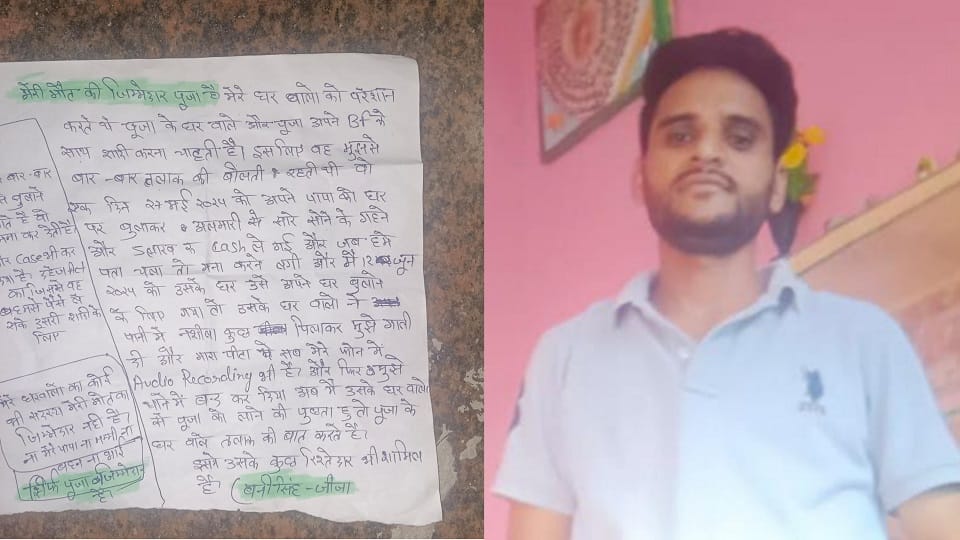 मेरी मौत की जिम्मेदार पूजा है मेरे घर वालो को परेशान
करते थे पूजा के घर वाले और पूजा अपने Bf के
साथ शादी करना चाहती है। इस लिए वह मुझसे
बार-बार तलाक की बोलती रहती थी वो
एक दिन 27 मई 2025 को अपने पापा को घर
पर बुलाकर अलमारी से सारे सोने के गहने
और 5 लाख रु Cash ले गई और जब हमे
पता चला तो मना करने लगी और मैं 12 जून
2025 को उसके घर उसे अपने घर बुलाने
के लिए गया तो उसके घर वालो ने
पानी में नशीला कुछ पिलाकर मुझे गाली
दी और मारा पीटा ये सब मेरे फोन में
Audio Recording भी है। और फिर मुझे
थाने में बन्द कर दिया अब मैं उसके घर वालो
को पूजा को लाने की पुछता हु तो पूजा के
घर वाले तलाक की बात करते है।
इसमे उसके कुछ रिश्तेदार भी शामिल
है। (बनी सिंह - जीजा
बार-बार
बुलाने
जाते है तो
मना कर देती है।
और Case भी कर
रखा है।
का जिससे वह
हमसे पैसे ले
सके दुसरी शादी के
लिए
मेरे घरवालो का कोई
भी सदस्य मेरी मौत का
जिम्मेदार नही है।
ना मेरे पापा ना मम्मी ना
बहन ना भाई
सिर्फ पूजा जिम्मेदार
है।